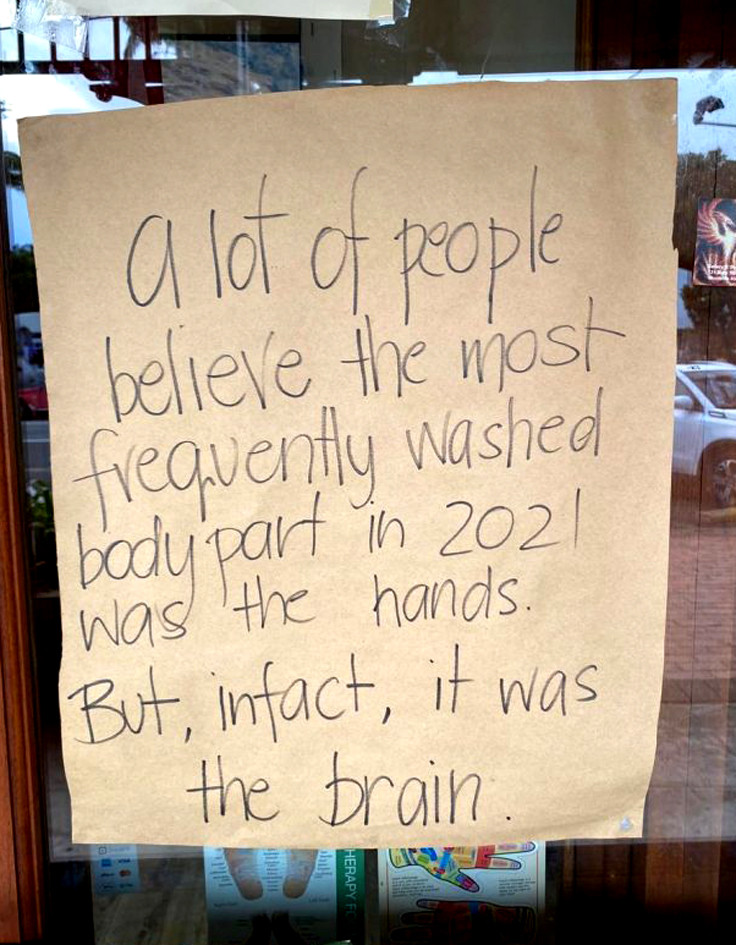 a lot of people
believe the most
frequently washed
body part in 2021
was the hands.
But, infact, it was
the brain.
VISA